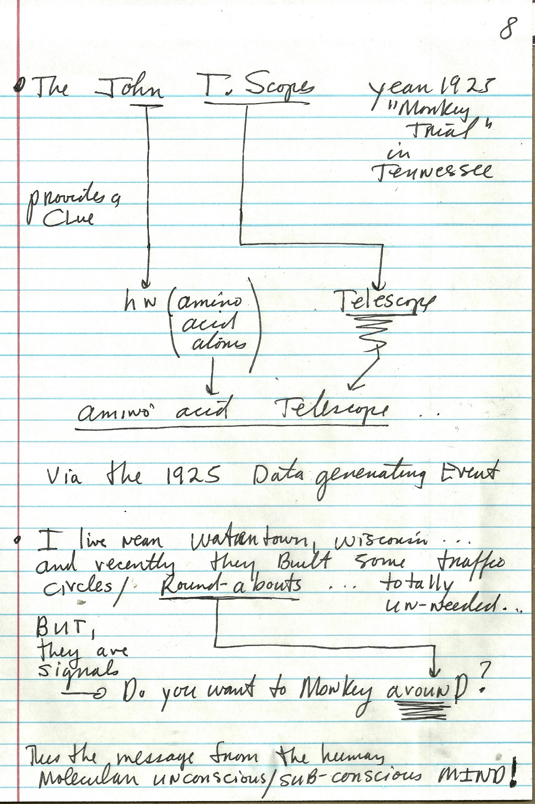 8
• The John T. Scopes
year 1925
"Monkey
Trial"
in
Tennessee
provides a
Clue
hN (amino
acid
atoms)
Telescope
amino acid Telescope ..
Via the 1925 Data generating Event
• I live near Watertown, Wisconsin ...
and recently they Built some traffic
circles/ Round-abouts ... totally
un-needed...
BUT,
they are
signals
Do you want to Monkey arounD?
Thus the message from the human
Molecular unconscious/sub-conscious MIND!